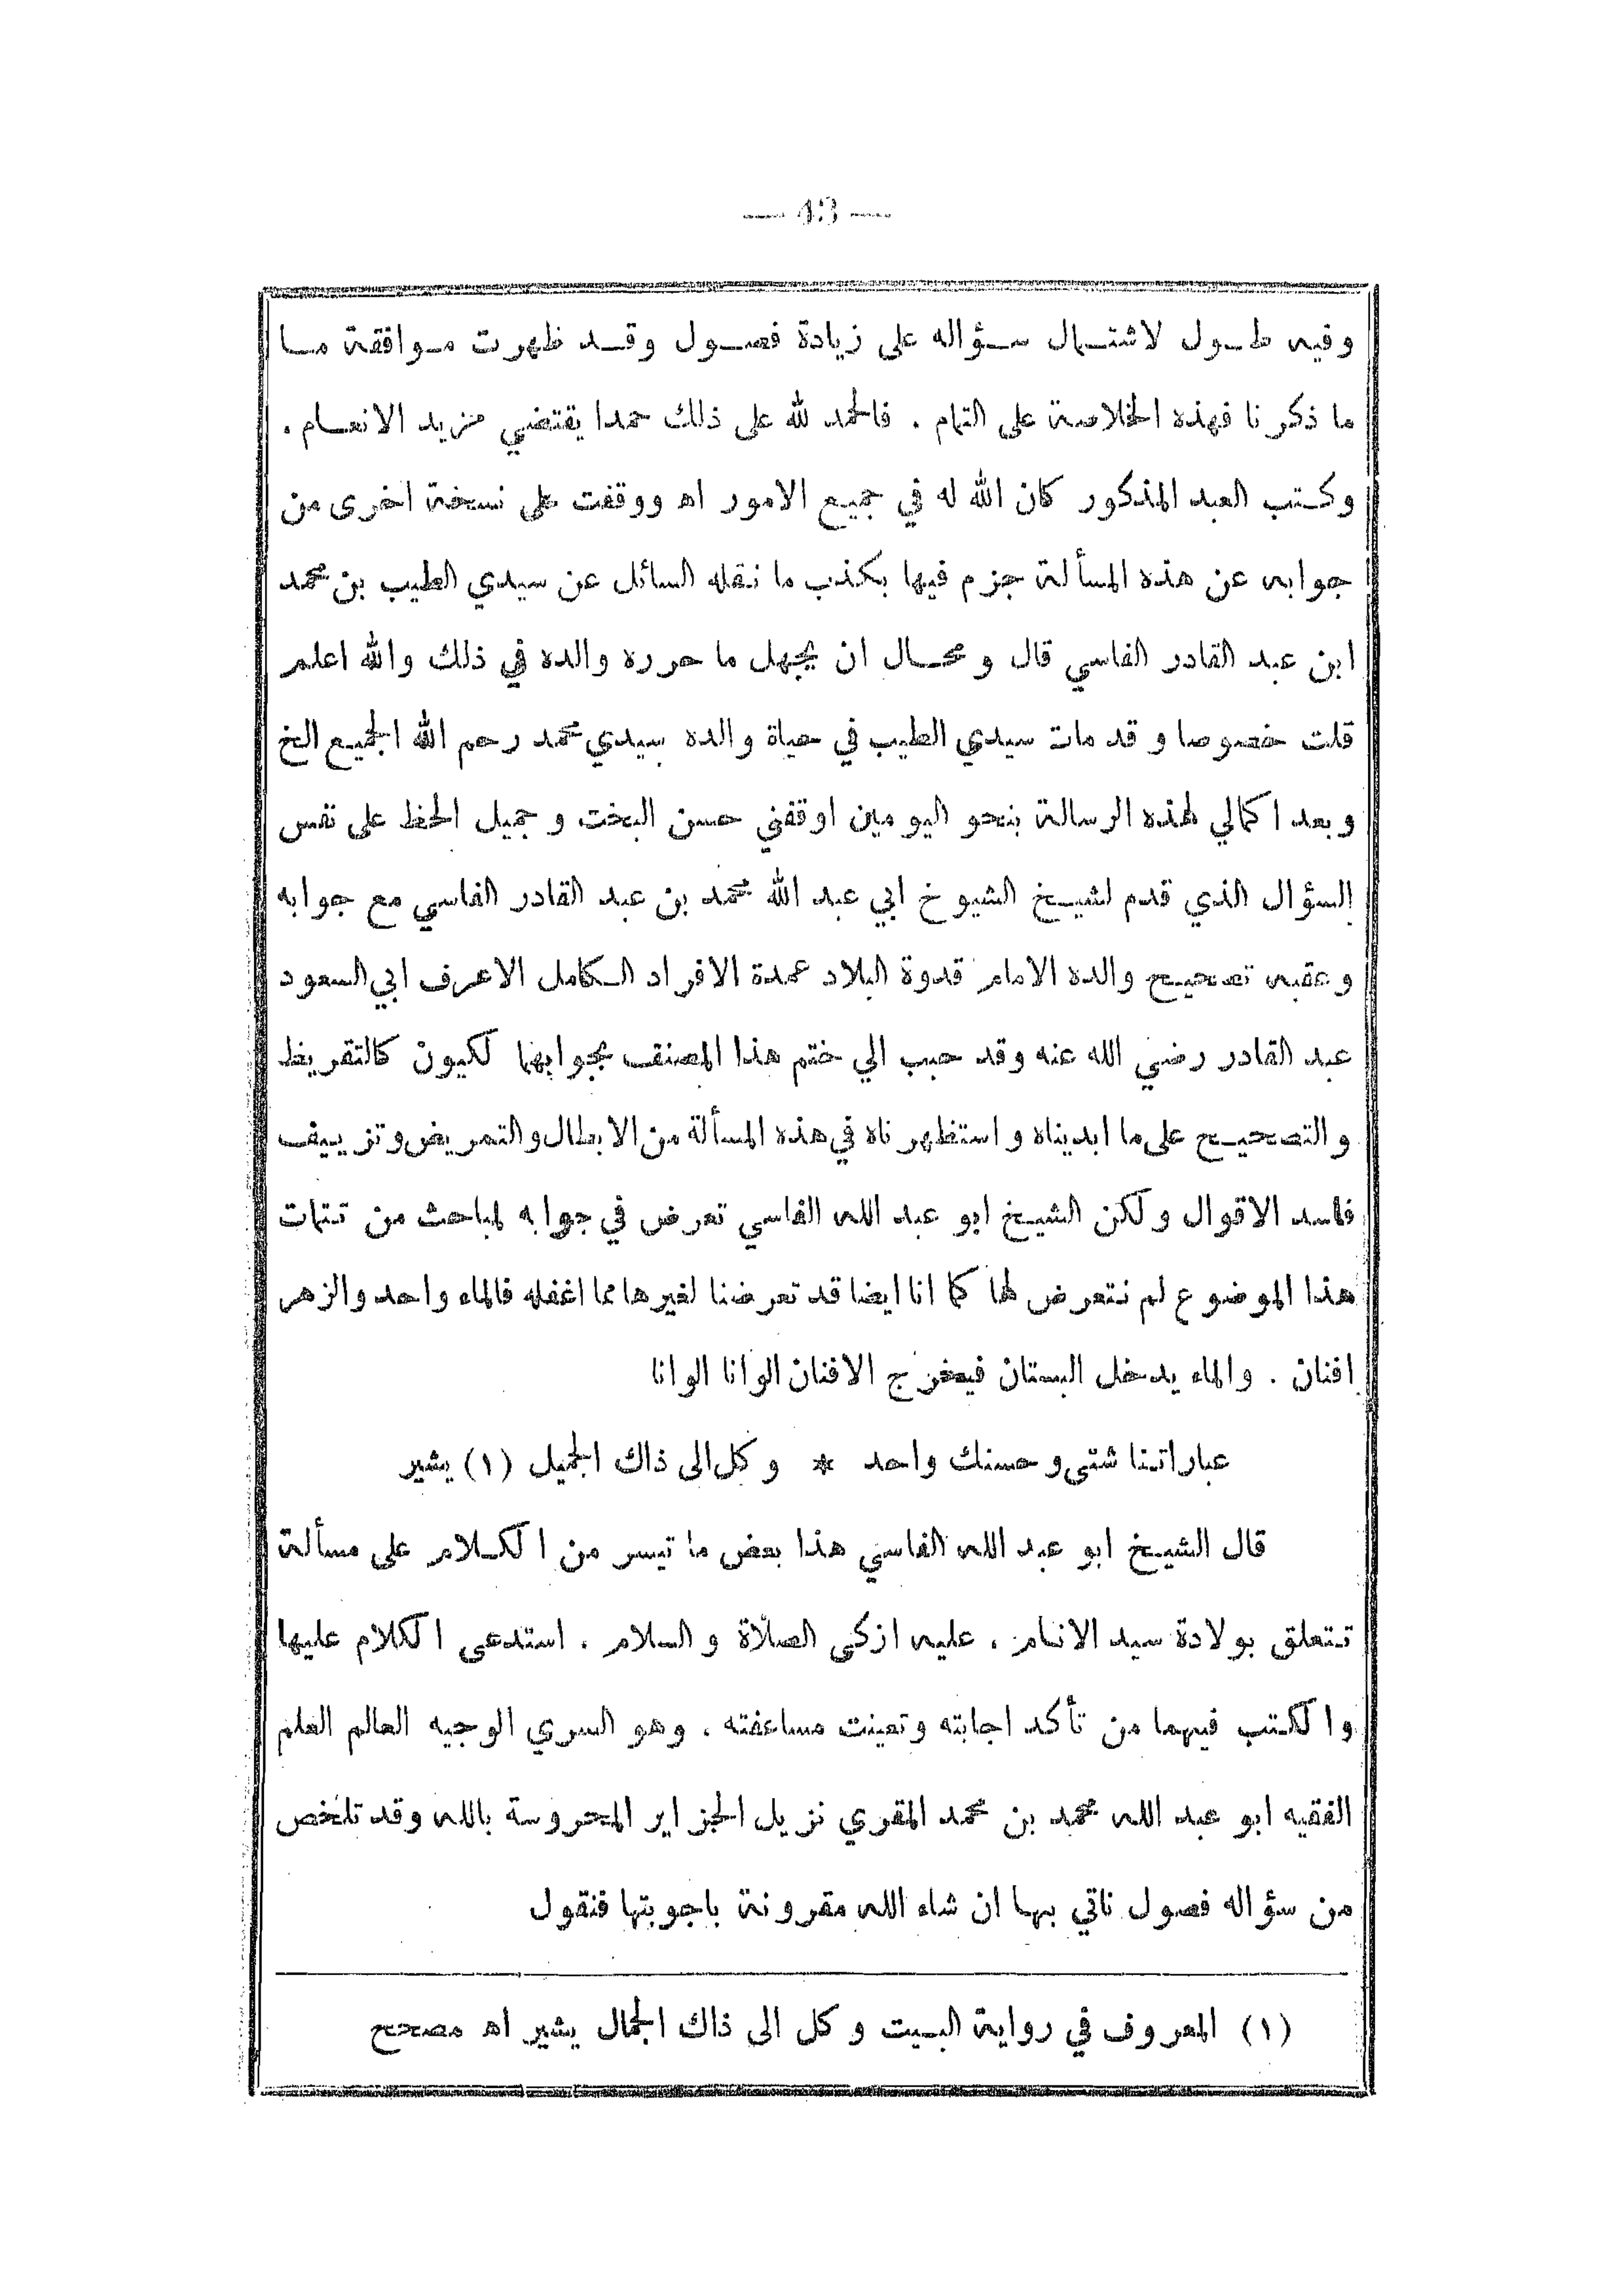 — 43 —
وفيه طول لاشتمال سؤاله على زيادة فصول وقد ظهرت موافقة ما
ما ذكرنا فهذه الخلاصة على التمام . فالحمد لله على ذلك حمدا يقتضي مزيد الانعام .
وكتب العبد المذكور كان الله له في جميع الامور اه ووقفت على نسخة اخرى من
جوابه عن هذه المسألة جزم فيها بكذب ما نقله السائل عن سيدي الطيب بن محمد
ابن عبد القادر الفاسي قال ومحال ان يجهل ما حرره والده في ذلك والله اعلم
قلت خصوصا وقد مات سيدي الطيب في حياة والده سيدي محمد رحم الله الجميع الخ
وبعد اكمالي لهذه الرسالة بنحو اليومين اوقفني حسن البخت وجميل الحظ على نفس
السؤال الذي قدم لشيخ الشيوخ ابي عبد الله محمد بن عبد القادر الفاسي مع جوابه
وعقبه تصحيح والده الامام قدوة البلاد عمدة الافراد الكامل الاعرف ابي السعود
عبد القادر رضي الله عنه وقد حبب الي ختم هذا المصنف بجوابهما لكيون كالتقريظ
والتصحيح على ما ابديناه واستظهرناه في هذه المسألة من الابطال والتمريض وتزييف
فاسد الاقوال ولكن الشيخ ابو عبد الله الفاسي تعرض في جوابه لمباحث من تتمات
هذا الموضوع لم نتعرض لها كما انا ايضا قد تعرضنا لغيرها مما اغفله فالماء واحد والزهر
افنان . والماء يدخل البستان فيخرج الافنان الوانا الوانا
عباراتنا شتى وحسنك واحد * وكل الى ذاك الجميل (١) يشير
قال الشيخ ابو عبد الله الفاسي هذا بعض ما تيسر من الكلام على مسألة
تتعلق بولادة سيد الانام . عليه ازكى الصلاة والسلام . استدعى الكلام عليها
والكتب فيهما من تأكد اجابته وتعينت مساعفته . وهو السري الوجيه العالم العلم
الفقيه ابو عبد الله محمد بن محمد المقري نزيل الجزاير المحروسة بالله وقد تلخص
من سؤاله فصول ناتي بها ان شاء الله مقرونة باجوبتها فنقول
(١) المعروف في رواية البيت وكل الى ذاك الجمال يشير اه مصحح